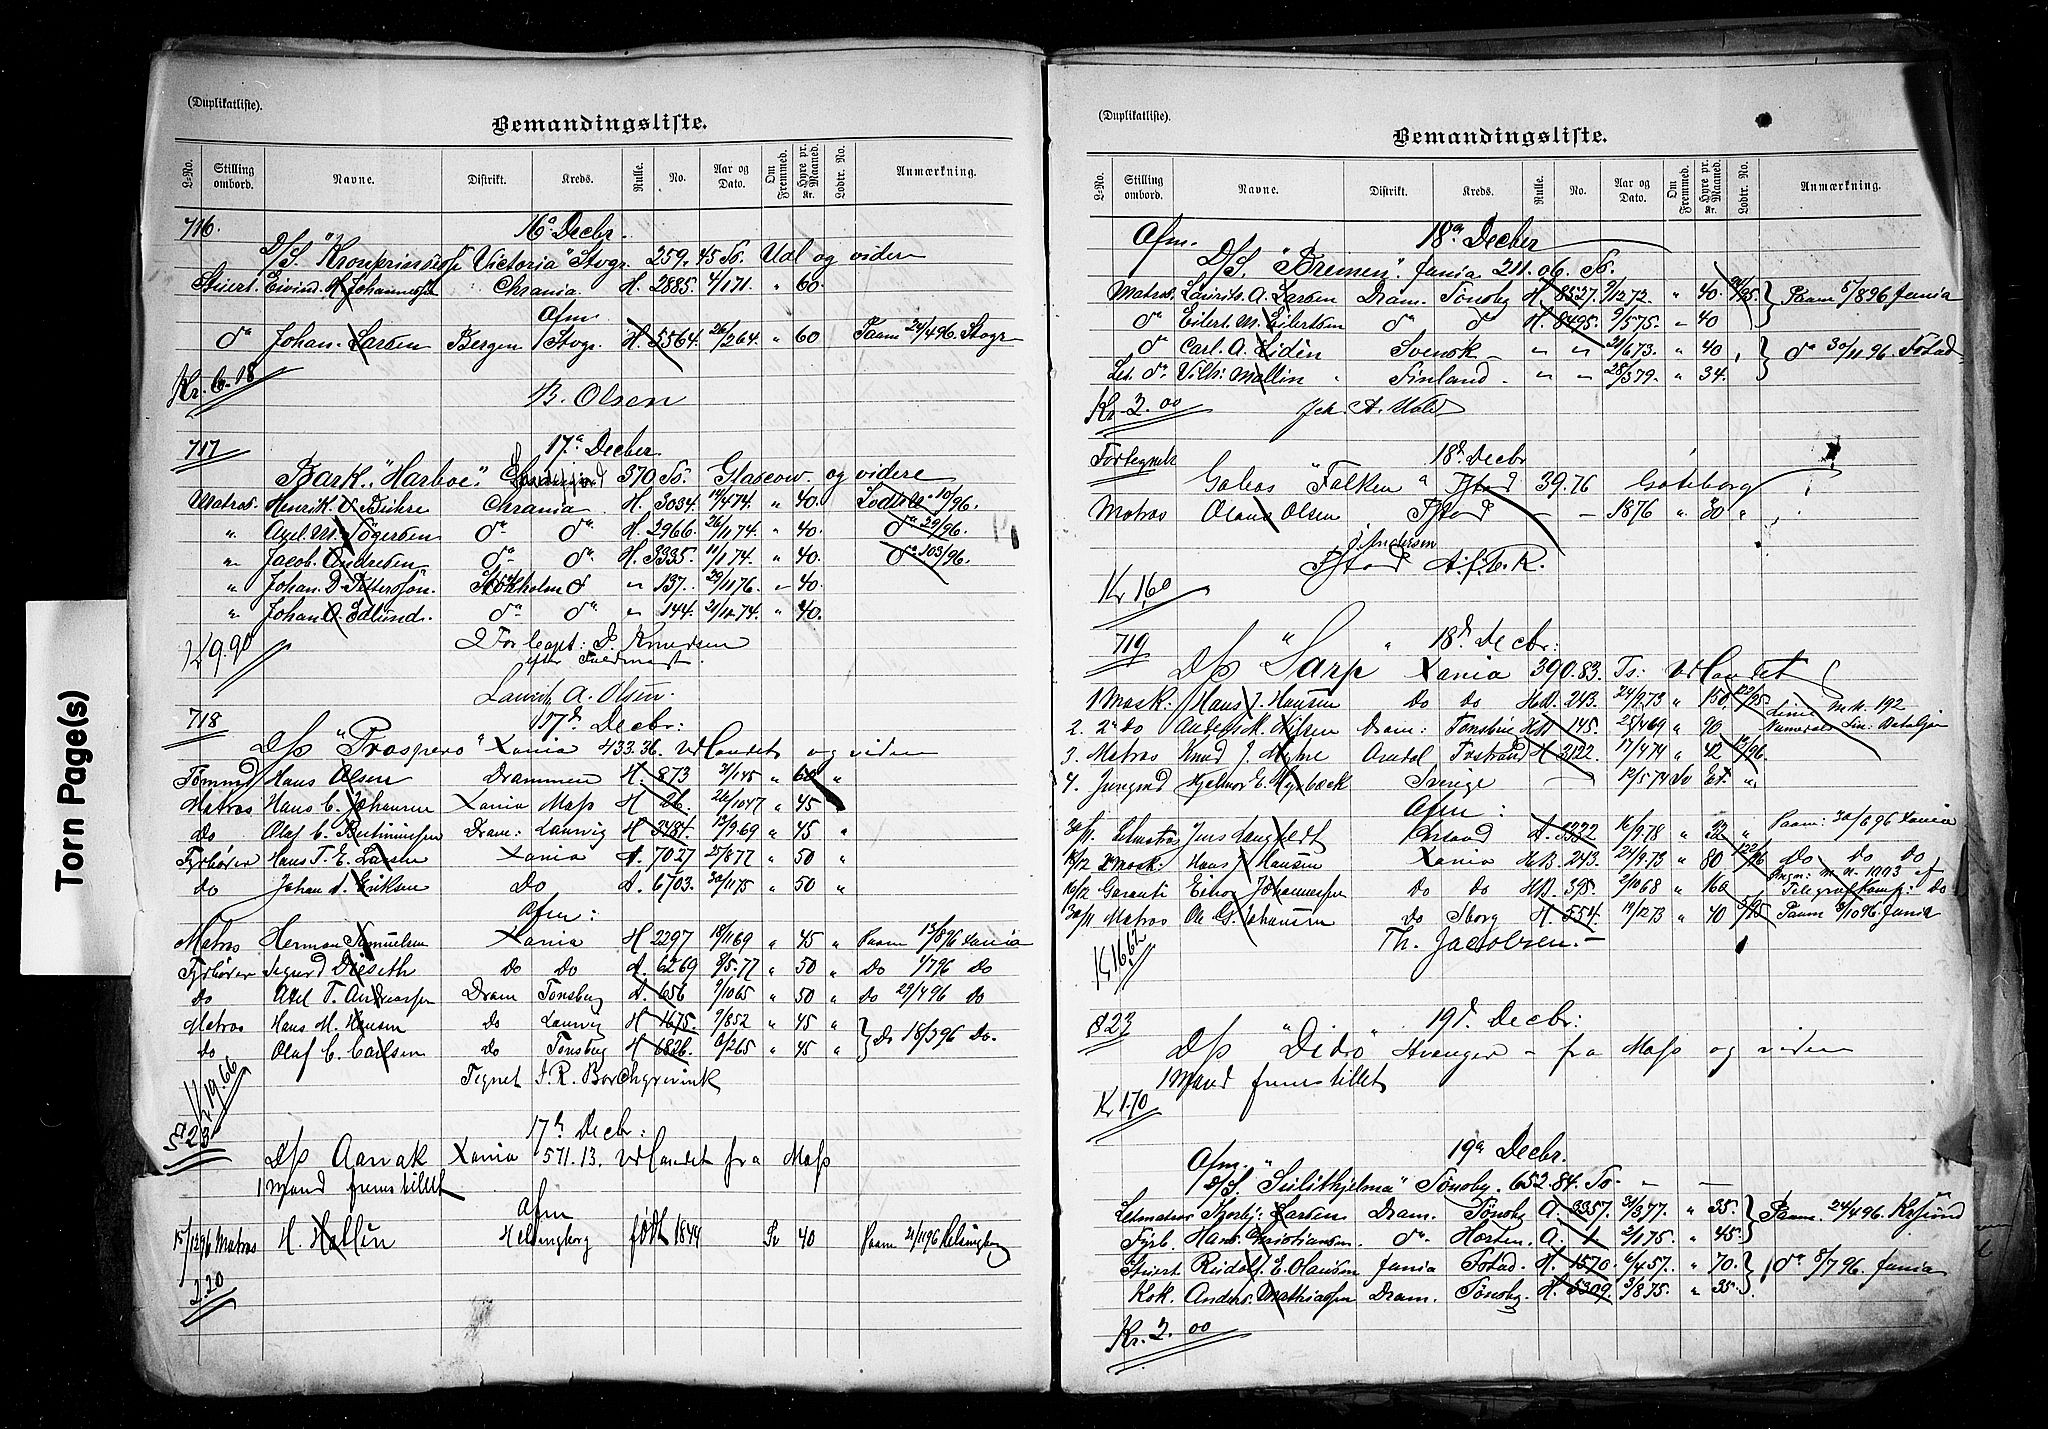 Torn Page(s)
(Duplikatliste).
Bemandingsliste.
L-No. Stilling ombord. Navne. Distrikt. Kreds. Rulle. No. Aar og Dato. Om Fremmed. Hyre pr. Maaned. Kr. Lodtr. No. Anmærkning.
716. 16de Decbr.
D/S. "Kronprinsesse Victoria" Stvgr. 259.45 To. Udl og videre
Stuert. Eivind. H. Johannessen Chrania H. 2885. 4/1 71. " 60.
Afm.
do Johan. Larsen Bergen Stvgr. H. 5564. 26/2 64. " 60 Paam 24/4 96. Stvgr
Kr. 6.18
B. Olsen
717 17de Decber
Bark. "Harboe" 570 To. Glascow. og videre
Matros. Henrik. Chrania H. 3034. 19/4 74. " 40. 10/96.
" Axel. M. Tögersen do do H. 2966. 26/1 74. " 40. do 29/96.
" Jacob. Andresen do do H. 3335. 11/1 74. " 40. do 103/96.
" Johan. D. Pettersson. Stokholm do " 137. 29/11 76. " 40.
" Johan. A. Edlund. do do " 144. 21/12 74. " 40.
9.90 2 Forlagpt: P. Knudsen
efter Fuldmagt.
Laurits A. Olsen.
718 17de Decbr:
D/S "Prospero" Xania 433.36. Udlandet og videre
Tømmd Hans Olsen Drammen H. 873 31/1 45 " 60 "
Matros Hans C. Johansen Xania Mass H 26. 26/10 47 " 45
do Olaf C. Dram: Laurvig H 3484. 13/9 69 " 45 "
Fyrbøter Hans T. E. Larsen Xania A. 7027 25/8 77 " 50 "
do Johan A. Eriksen Do A. 6703. 30/11 75 " 50 "
Afm:
Matros Herman Samuelsen Xania H 2297 18/11 69 " 45 " Paam 13/8 96 Xania
Fyrbøter Sigurd Diseth Do Do A. 6269 8/5.77 " 50 " Do 4/7 96 Do
do Axel T. Andreassen Dram Tønsberg A. 656 9/10 65 " 50 " Do 29/4 96 Do
Matros Hans M. Hansen Do Laurvig H 1675. 9/8 52 " 45 " Do 18/3 96 Do.
do Olaf C. Carlsen Do Tønsberg H 6826. 6/2 65 " 45 "
K 19.66 Tegnet I. R. Borchgrevink
§ 23 17de Decbr:
D/S Aarvak Xania 571.13. Udlandet fra Mass
1 Mand fremstillet
Afm
15/12 96 Matros H. Hallin Helsingborg født 1844 Sv 40 Paam 21/11 96 Helsingborg
2.20
(Duplikatliste).
Bemandingsliste.
L-No. Stilling ombord. Navne. Distrikt. Kreds. Rulle. No. Aar og Dato. Om Fremmed. Hyre pr. Maaned. Kr. Lodtr. No. Anmærkning.
Afm. 18de Decber
D/S. "Bremen". Xania 211.06. To.
Matros. Laurits. A. Larsen Dram. Tönsbg H. 8527. 9/12 72. " 40. Paam 5/8 96. Xania
do Eilert. M. Eilertsen do do H. 8495. 9/5 75. " 40
do Carl. A. Lidén Svensk " " 21/6 73. " 40. do 30/11 96. Fstad.
Let. do Vilh: Mallin Finland. " " 28/3 79. " 34.
Kr. 2.00 Joh. A.
Fortegnels 18de Decbr
Galeas "Falken" Fstad 39.76 Göteborg
Matros Olaus Olsen Fstad — — 1876 " 30 "
Andersen
Kr 1.60 Fstad
719 18de Decbr:
D/S "Sarp" Xania 390.83. Ts: Udlandet
1 Mask. Hans J. Hansen Do Do H.D. 243. 24/9.73 " 150 122/95. Linie M. N. 192
2. 2n do Anders M. Nilsen Dram: Tønsberg 145. 25/4 69 " 90 Nummeral: Lin: Bataljon
3. Matros Knud J. Arendal H 2122. 17/4 74 " 42 12/96.
4. Jungmd Hjelmar E. Hysbæck Sverige 12/5 74 Sv Et. "
Afm:
30/11. Letmatros Jens A. 5322 16/9.78 " 32 " Paam: 30/6 96 Xania
12/12 2 Mask: Hans J. Hansen Xania H.D. 243. 24/9.73 " 80 122/96 Do Do Do
10/12 Garanti Do Do H.D. 395. 2/10 68 " 160 Telegraf Komp: Do
30/11. Matros Ole G. Johansen Do Sborg H. 554. 19/12 73 " 40 5/95 Paam 3/10 96. Xania
K 16.62 Th. Jacobsen. —
§ 23 19de Decbr:
D/S "Dido" Stvanger – fra Mass og viden
1 Mand fremstillet
Kr 1.70
Afm. 19de Decbr.
D/S. "Sulithjelma" Tönsbg. 652.84. To. — —
Letmatros Larsen Dram. Tönsbg A. 3357. 31/3 77. " 35. Paam. 24/4 96. Krsund
Fyrb. Hans. Christiansen. do Horten. A. 1. 2/1 75. " 45.
Stuert. Rudolf. E. Olausen Xania Fstad. H. 1570. 6/4 57. " 70. do 8/7 96. Xania
Kok. Anders. Mathiassen Dram. Tönsbg. H. 5309. 3/8 75. " 35.
Kr. 2.00